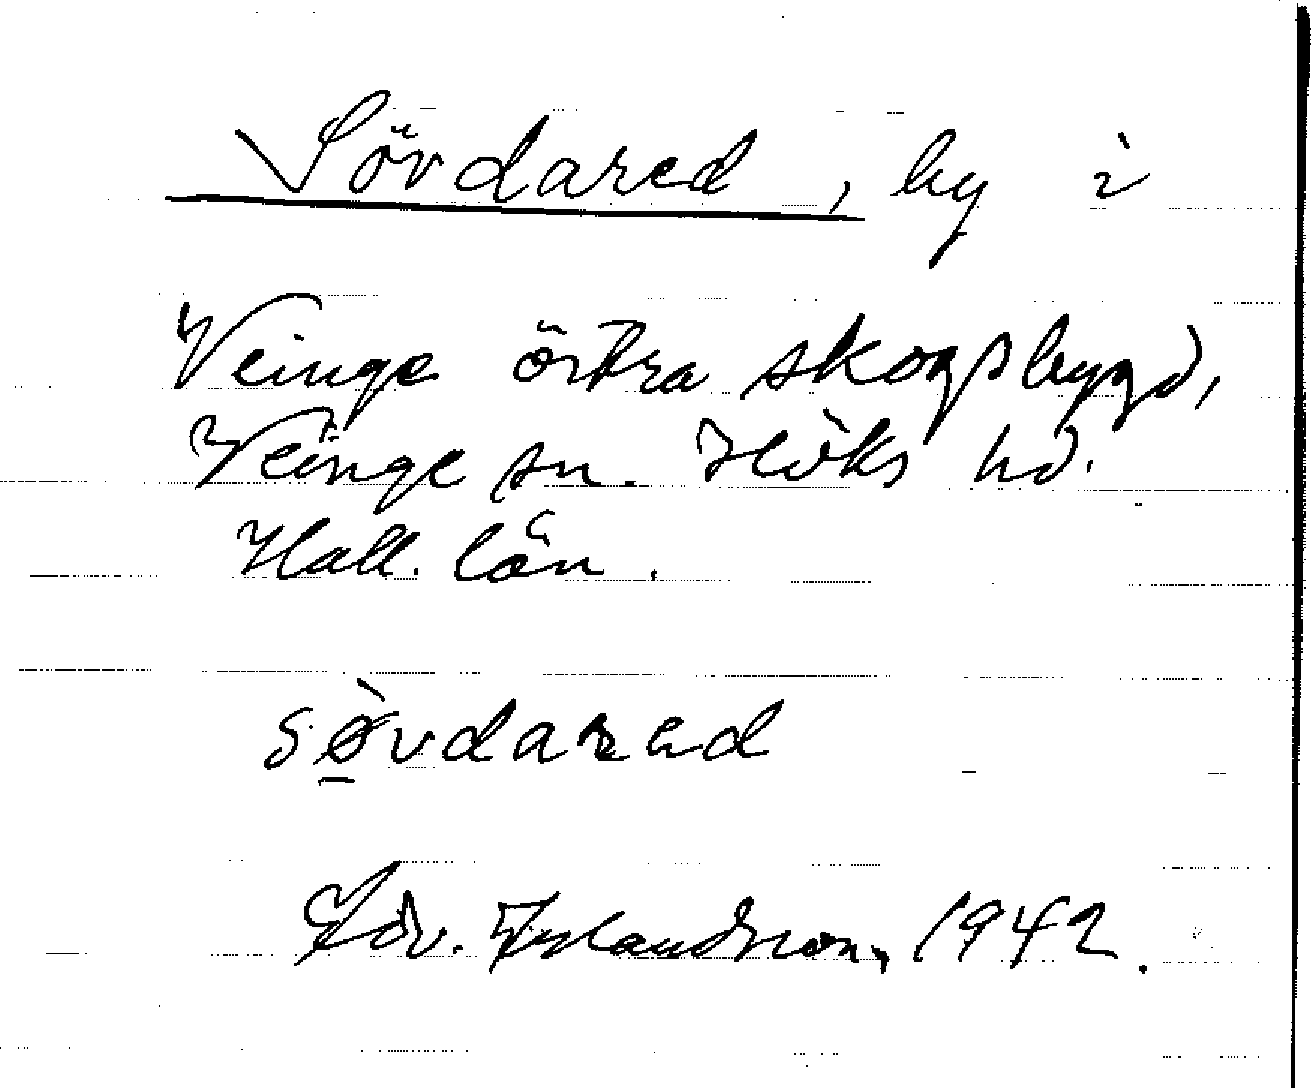 Sövdared, by i
Veinge östra skogsbygd,
Veinge sn. Höks hd.
Hall. län.
sø̱̀vdared
Edv. 1942.